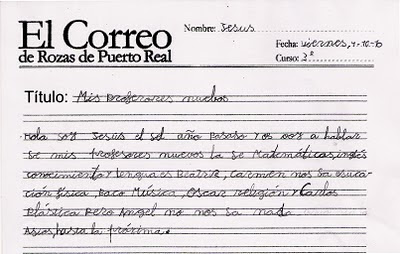 El Correo
de Rozas de Puerto Real
Nombre: Jesus
Fecha: viernes,
Curso: 3º
Título: Mis profesores nuebos
Hola soy Jesus el del año pasado y os voy a hablar
de mis profesores nuevos la de Matemáticas, inglés
conocimiento y lengua es Beatriz, Carmen nos da educa
ción física, Paco Música, Oscar religión y Carlos
Plástica Pero Angel no nos da nada
Adios, hasta la próxima.